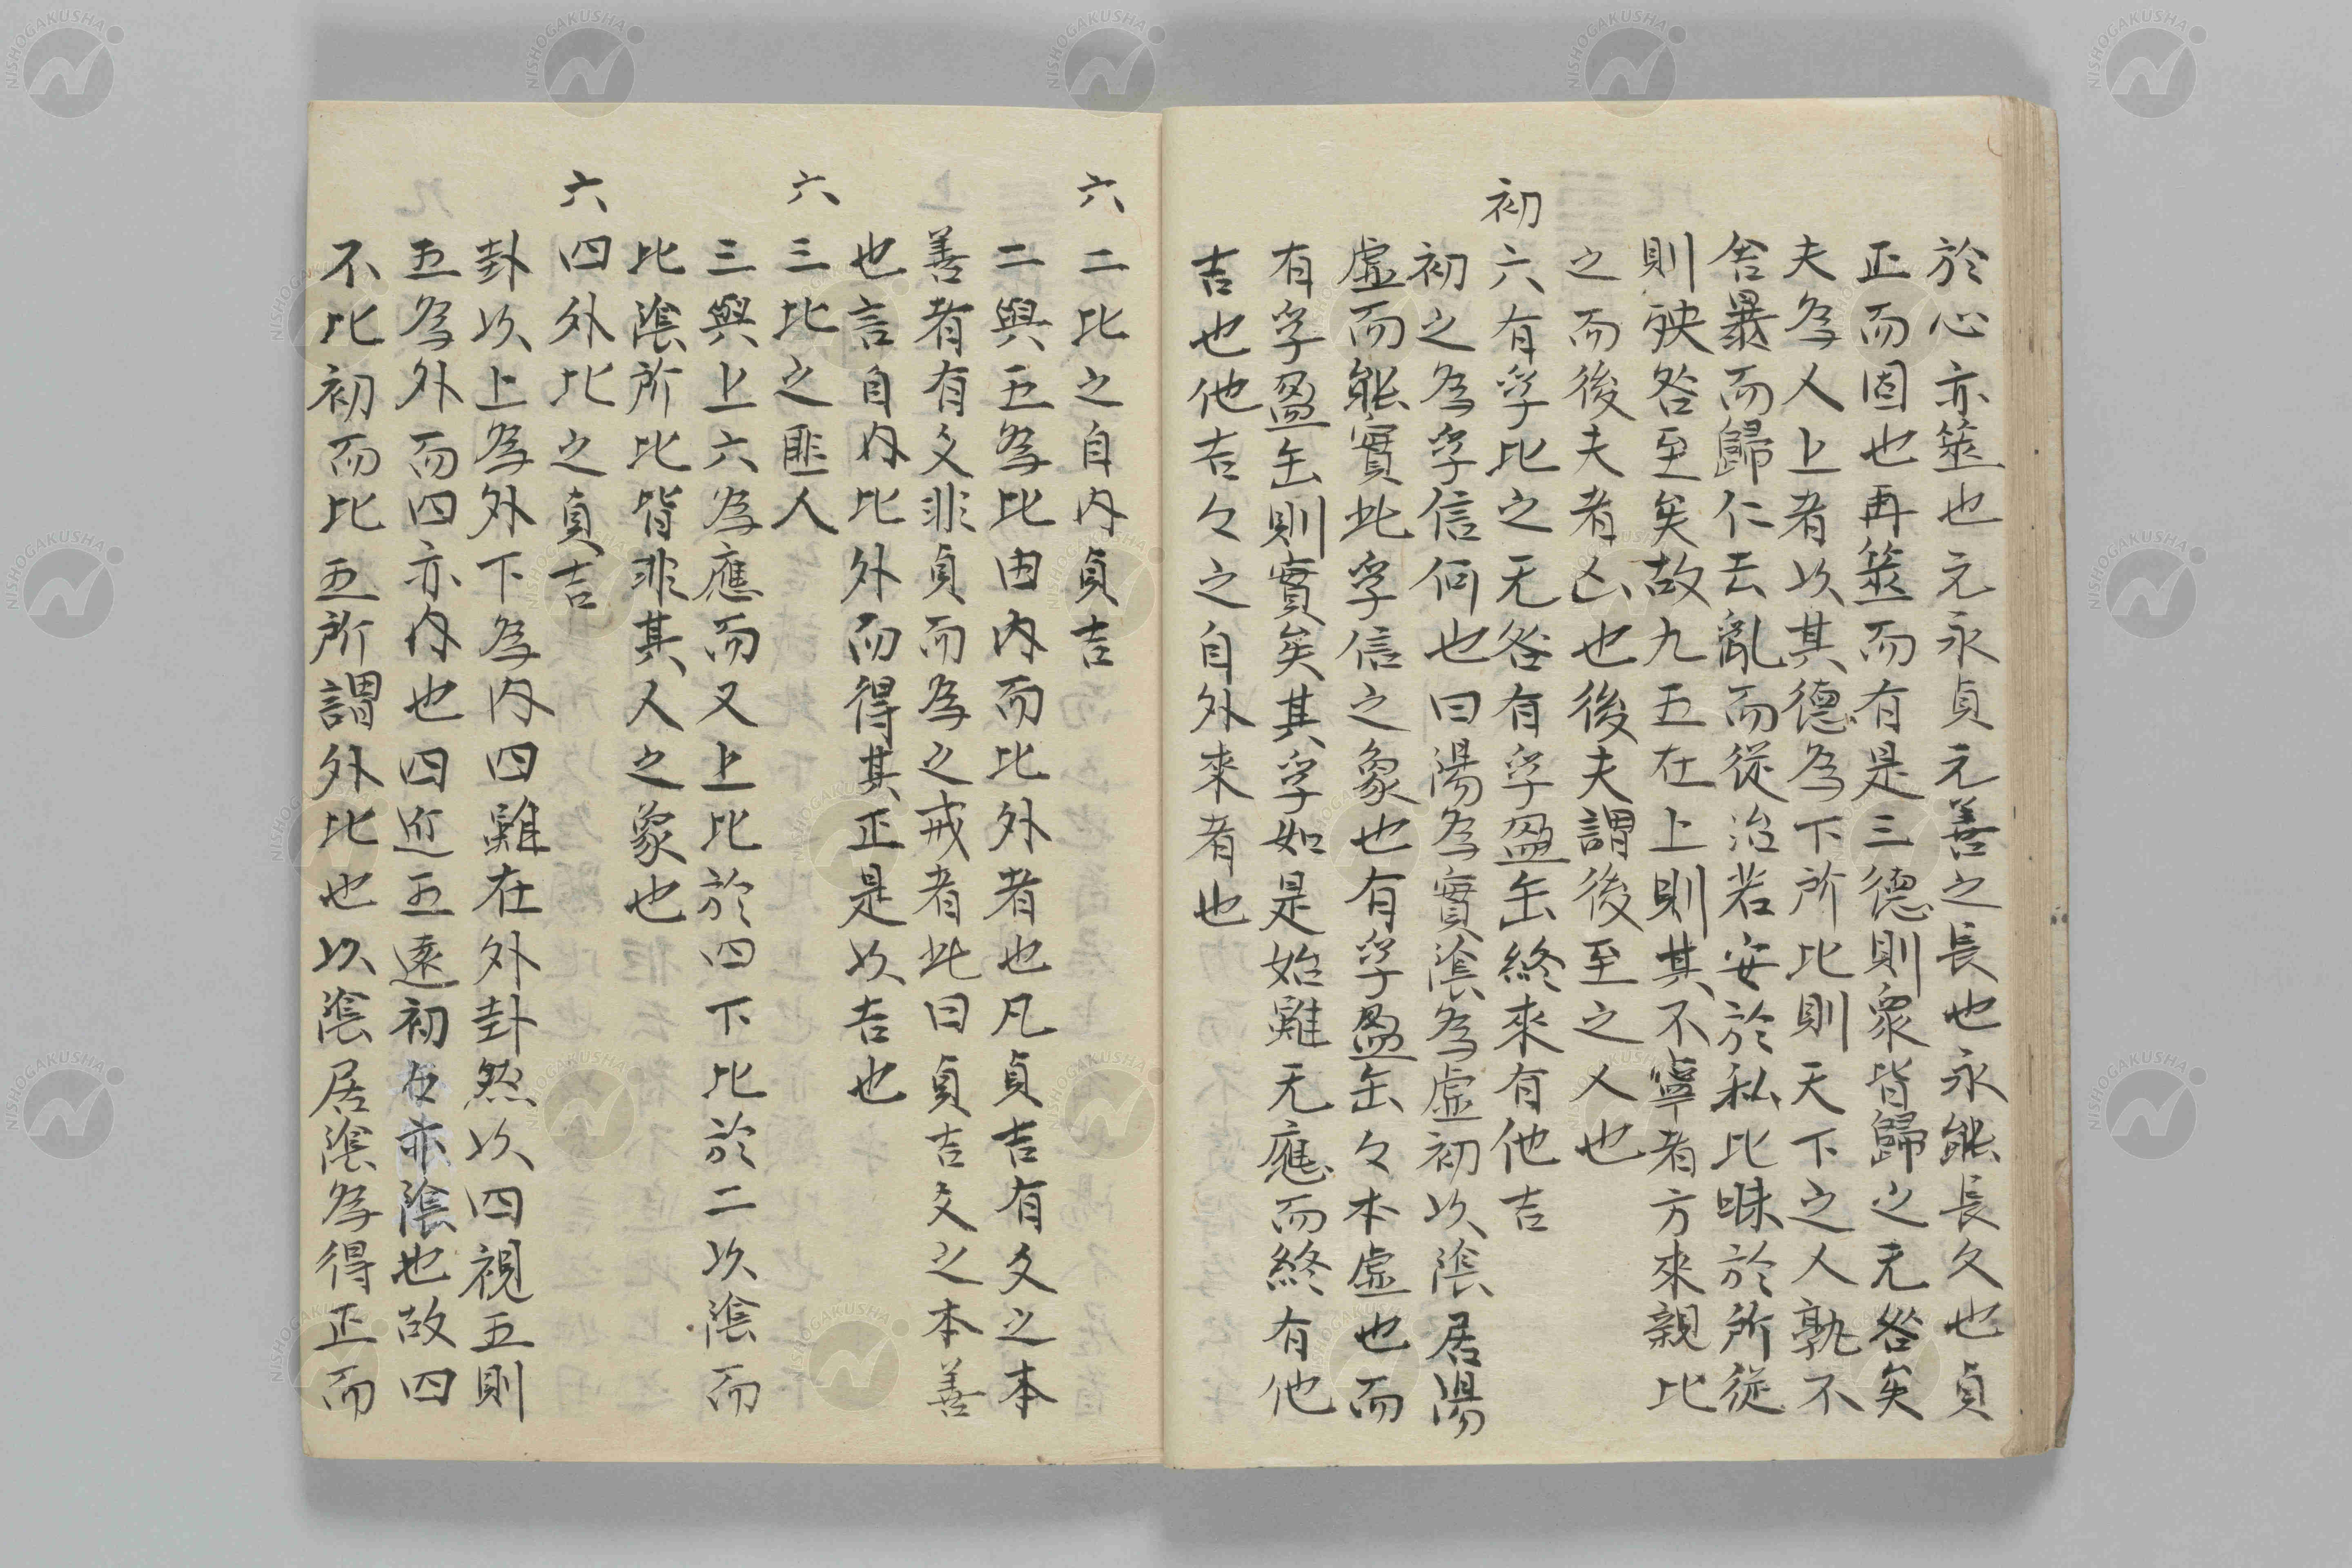 於心亦筮也元永貞元善之長也永能長久也貞
正而固也再筮而有是三德則衆皆歸之无咎矣
夫爲人上者以其德爲下所比則天下之人孰不
舍暴而歸仁去亂而從治若安於私比昧於所從
則殃咎至矣故九五在上則其不寧者方來親比
之而後夫者凶也後夫謂後至之人也
初六有孚比之无咎有孚盈缶終來有他吉
初之爲孚信何也曰陽爲實陰爲虛初以陰居陽
虛而能實此孚信之象也有孚盈缶々本虛也而
有孚盈缶則實矣其孚如是始雖无應而終有他
吉也他吉々之自外來者也
六二比之自内貞吉
二與五爲比由内而比外者也凡貞吉有爻之本
善者有爻非貞而爲之戒者此曰貞吉爻之本善
也言自内比外而得其正是以吉也
六三比之匪人
三與上六爲應而又上比於四下比於二以陰而
比陰所比皆非其人之象也
六四外比之貞吉
卦以上爲外下爲内四雖在外卦然以四視五則
五爲外而四亦内也四近五遠初々亦陰也故四
不比初而比五所謂外比也以陰居陰爲得正而
NISHOGAKUSHA